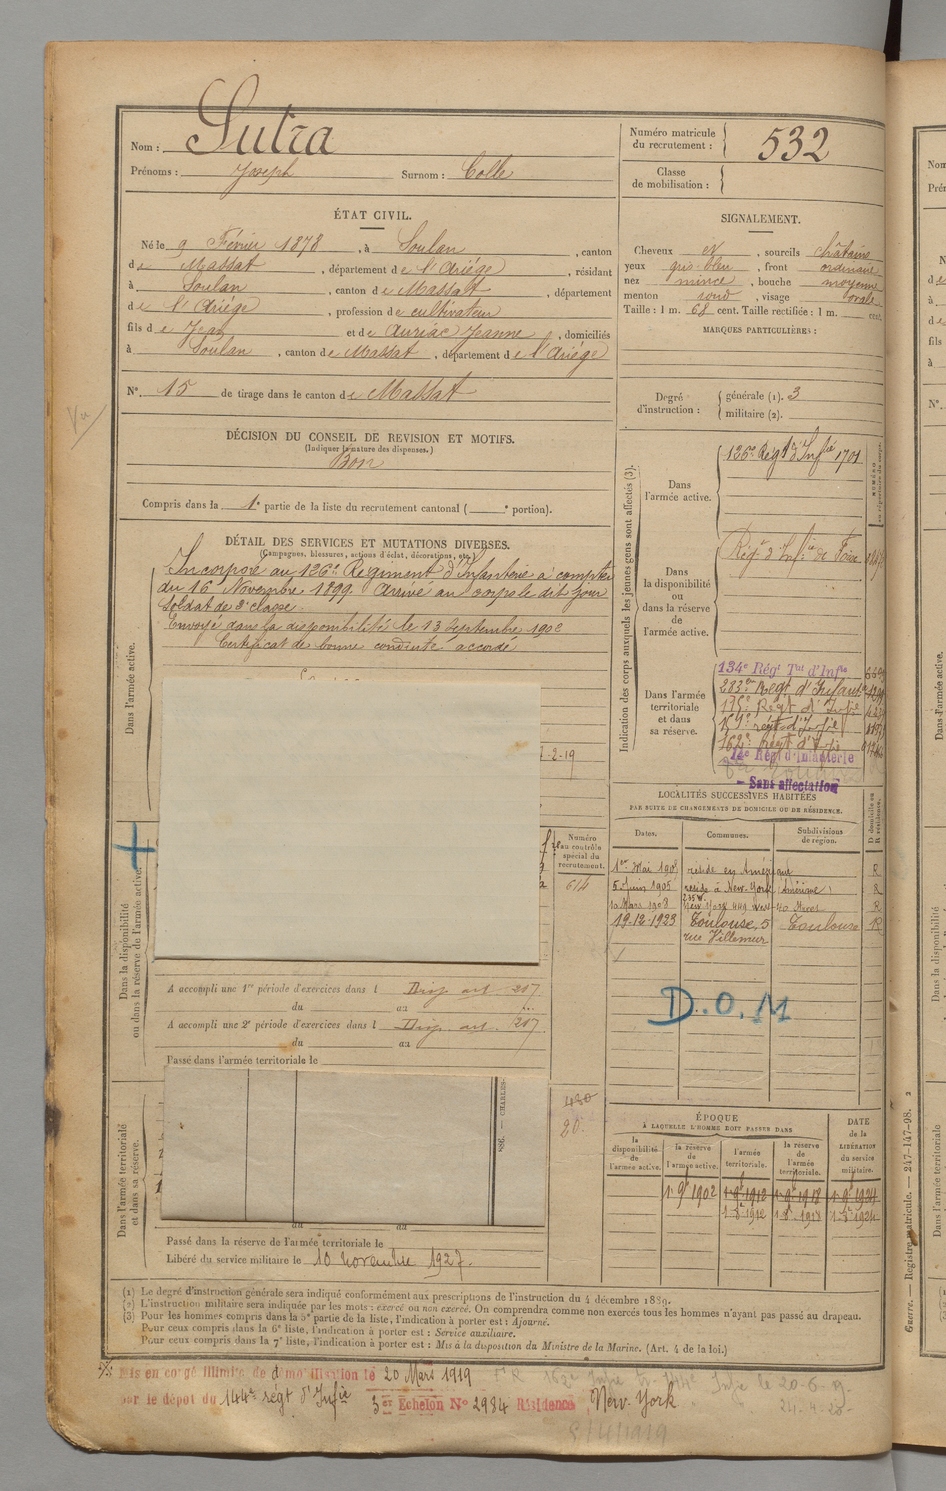 Nom : Sutra
Prénoms : Joseph Surnom : Colle
Numéro matricule du recrutement : 532
Classe de mobilisation :
ÉTAT CIVIL.
Né le 9 Février 1878, à Soulan, canton
de Massat, département de l'Ariége, résidant
à Soulan, canton de Massat, département
de l'Ariége, profession de cultivateur
fils de Jean et de Auriac Jeanne, domiciliés
à Soulan, canton de Massat, département de l'Ariége
N° 15 de tirage dans le canton de Massat
SIGNALEMENT.
Cheveux et, sourcils châtains
yeux gris-bleu, front ordinaire
nez mince, bouche moyenne
menton rond, visage ovale
Taille : 1 m. 68 cent. Taille rectifiée : 1 m. cent.
MARQUES PARTICULIÈRES :
Degré d'instruction : générale (1). 3
militaire (2).
DÉCISION DU CONSEIL DE REVISION ET MOTIFS.
(Indiquer la nature des dispenses.)
Bon
Compris dans la 1e partie de la liste du recrutement cantonal ( e portion).
DÉTAIL DES SERVICES ET MUTATIONS DIVERSES.
(Campagnes, blessures, actions d'éclat, décorations, etc.)
Dans l'armée active.
Incorporé au 126e Régiment d'Infanterie à compter
du 16 Novembre 1899. Arrivé au corps le dit jour
soldat de 2e classe.
Envoyé dans la disponibilité le 13 Septembre 1902
Certificat de bonne conduite accordé
-2-19
Dans la disponibilité ou dans la réserve de l'armée active.
Numéro au contrôle spécial du recrutement.
614
A accompli une 1re période d'exercices dans l Disp. art. 207
du au
A accompli une 2e période d'exercices dans l Disp. art. 207
du au
Passé dans l'armée territoriale le
Dans l'armée territoriale et dans sa réserve.
— CHARLES-
au au
Passé dans la réserve de l'armée territoriale le
Libéré du service militaire le 10 novembre 1927.
Indication des corps auxquels les jeunes gens sont affectés (3).
Dans l'armée active.
126e Régt d'Infie 1701
Dans la disponibilité ou dans la réserve de l'armée active.
Régt d'Infie de Foix
Dans l'armée territoriale et dans sa réserve.
134e Régt Tal d'Infie
283e Régt d'Infant
175e Régt d'Infie
159e régt d'Infie
162e Régt d'Infie
14e Régt d'Infanterie
— Sans affectation
LOCALITÉS SUCCESSIVES HABITÉES
PAR SUITE DE CHANGEMENTS DE DOMICILE OU DE RÉSIDENCE.
Dates. Communes. Subdivisions de région. D domicile ou R résidence.
1er Mai 1903 réside en Amérique R
5 Juin 1905 réside à New-York (Amérique) R
10 Mars 1908 New York 449 West 40 Street R
19-12-1923 Toulouse, 5 rue Villemur Toulouse R
D.O.M
ÉPOQUE
À LAQUELLE L'HOMME DOIT PASSER DANS
DATE de la LIBÉRATION du service militaire.
la disponibilité de l'armée active. la réserve de l'armée active. l'armée territoriale. la réserve de l'armée territoriale.
1er 9bre 1902 1er 9bre 1912 1er 9bre 1918 1er 9bre 1924
(1) Le degré d'instruction générale sera indiqué conformément aux prescriptions de l'instruction du 4 décembre 1889.
(2) L'instruction militaire sera indiquée par les mots : exercé ou non exercé. On comprendra comme non exercés tous les hommes n'ayant pas passé au drapeau.
(3) Pour les hommes compris dans la 5e partie de la liste, l'indication à porter est : Ajourné.
Pour ceux compris dans la 6e liste, l'indication à porter est : Service auxiliaire.
Pour ceux compris dans la 7e liste, l'indication à porter est : Mis à la disposition du Ministre de la Marine. (Art. 4 de la loi.)
Mis en congé illimité de démobilisation le 20 Mars 1919
par le dépôt du 144e régt d'Infie 3er Echelon N° 2984 Résidence New-York
Guerre. — Registre matricule. — 247-147-98. 2